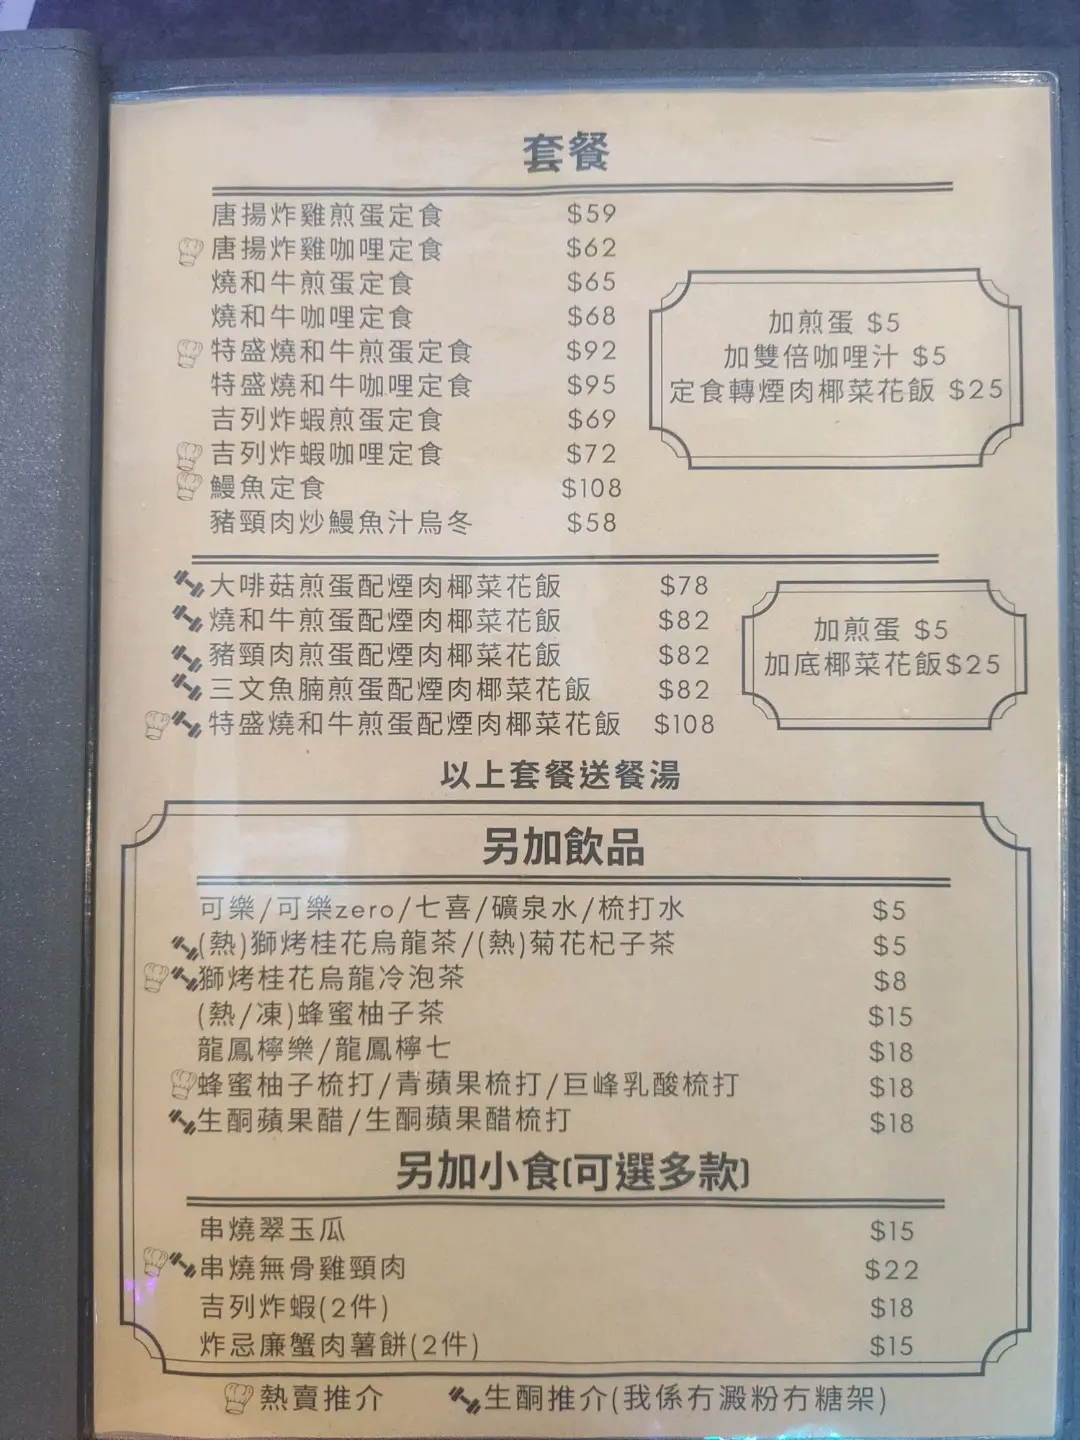 套餐
唐揚炸雞煎蛋定食 $59
唐揚炸雞咖哩定食 $62
燒和牛煎蛋定食 $65
燒和牛咖哩定食 $68
特盛燒和牛煎蛋定食 $92
特盛燒和牛咖哩定食 $95
吉列炸蝦煎蛋定食 $69
吉列炸蝦咖哩定食 $72
鰻魚定食 $108
豬頸肉炒鰻魚汁烏冬 $58
加煎蛋 $5
加雙倍咖哩汁 $5
定食轉煙肉椰菜花飯 $25
大啡菇煎蛋配煙肉椰菜花飯 $78
燒和牛煎蛋配煙肉椰菜花飯 $82
豬頸肉煎蛋配煙肉椰菜花飯 $82
三文魚腩煎蛋配煙肉椰菜花飯 $82
特盛燒和牛煎蛋配煙肉椰菜花飯 $108
加煎蛋 $5
加底椰菜花飯$25
以上套餐送餐湯
另加飲品
可樂/可樂zero/七喜/礦泉水/梳打水 $5
(熱)獅烤桂花烏龍茶/(熱)菊花杞子茶 $5
獅烤桂花烏龍冷泡茶 $8
(熱/凍)蜂蜜柚子茶 $15
龍鳳檸樂/龍鳳檸七 $18
蜂蜜柚子梳打/青蘋果梳打/巨峰乳酸梳打 $18
生酮蘋果醋/生酮蘋果醋梳打 $18
另加小食(可選多款)
串燒翠玉瓜 $15
串燒無骨雞頸肉 $22
吉列炸蝦(2件) $18
炸忌廉蟹肉薯餅(2件) $15
熱賣推介 生酮推介(我係冇澱粉冇糖架)